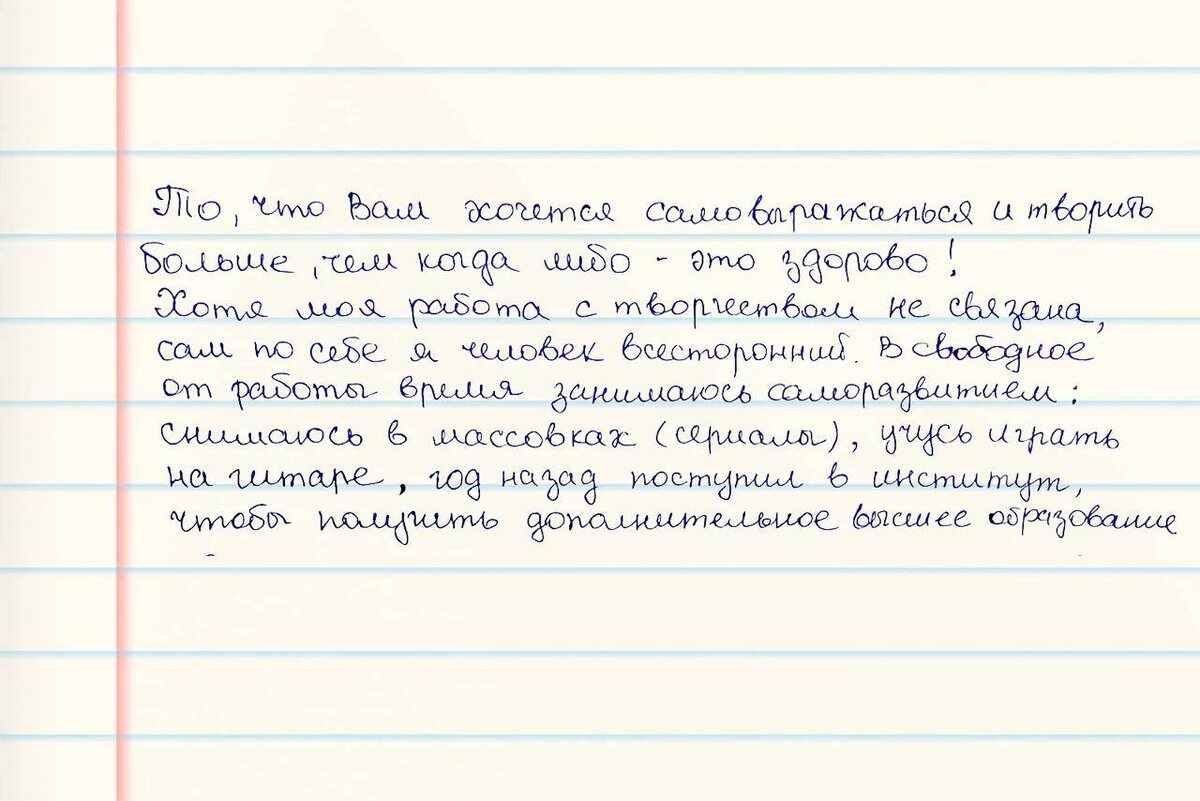 То, что Вам хочется самовыражаться и творить
больше, чем когда либо - это здорово!
Хотя моя работа с творчеством не связана,
сам по себе я человек всесторонний. В свободное
от работы время занимаюсь саморазвитием:
снимаюсь в массовках (сериалы), учусь играть
на гитаре, год назад поступил в институт,
чтобы получить дополнительное высшее образование